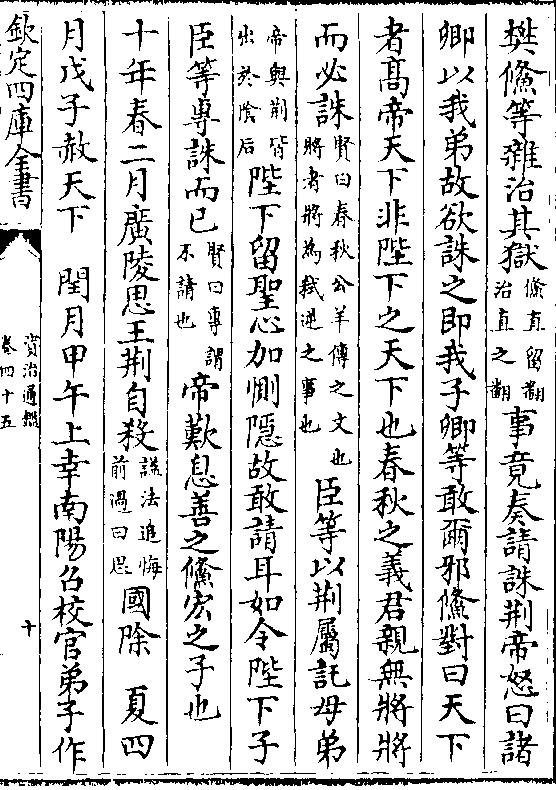 樊鯈等雜治其獄鯈直留翻治直之翻事竟奏請誅荆帝怒曰諸
卿以我弟故欲誅之即我子卿等敢爾邪鯈對曰天下
者高帝天下非陛下之天下也春秋之義君親無將將
而必誅賢曰春秋公羊傳之文也將者將為弑逆之事也臣等以荆屬託母弟
帝與荆皆出於隂后陛下留聖心加惻隠故敢請耳如令陛下子
臣等專誅而已賢曰專謂不請也帝歎息善之鯈宏之子也
十年春二月廣陵思王荆自殺諡法追悔前過曰思國除 夏四
月戊子赦天下 閏月甲午上幸南陽召校官弟子作
欽定四庫全書
資治通鑑
卷四十五
十